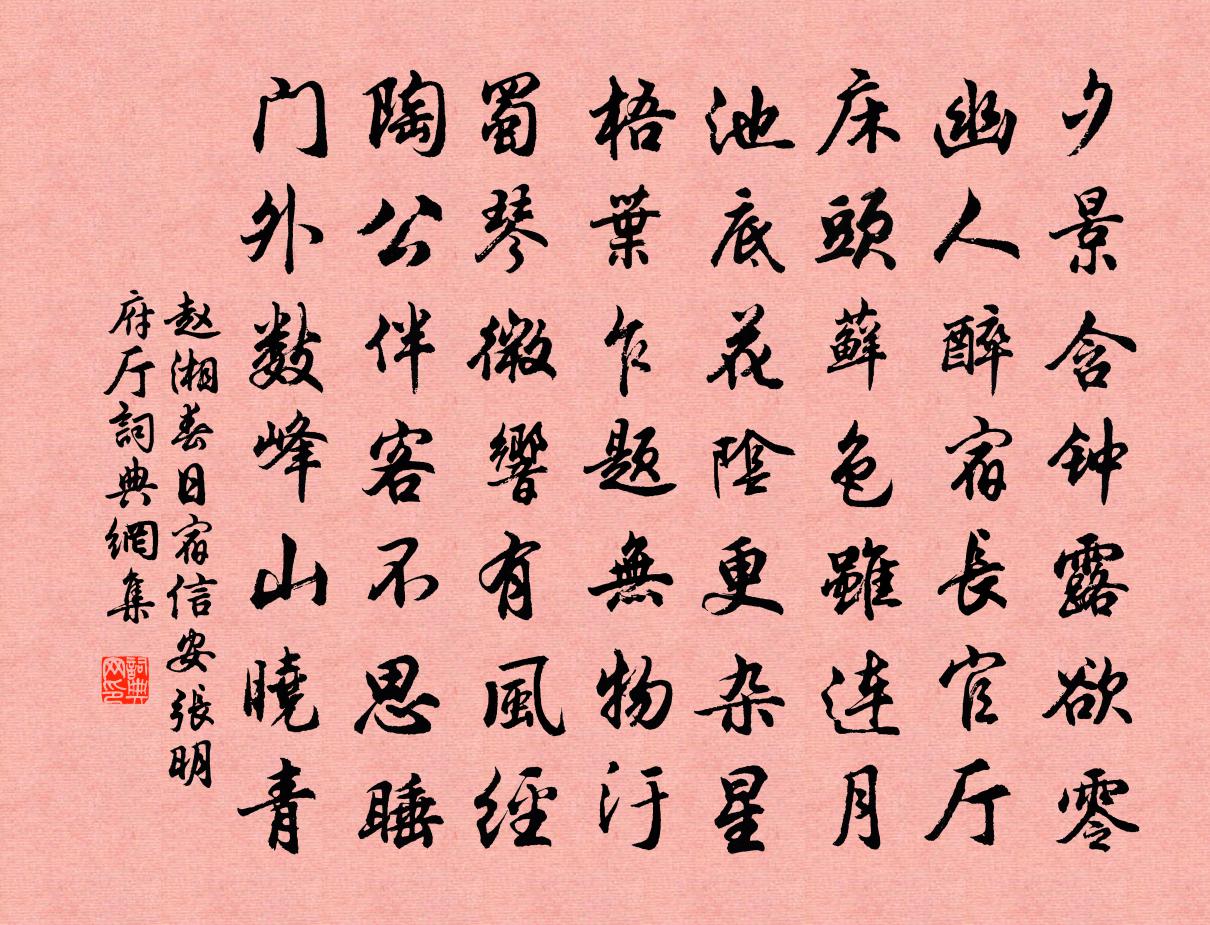 夕景含钟露欲零
幽人醉宿長官厅
床頭蘚色雖连月
池底花陰更杂星
梧葉乍题無物汙
蜀琴微響有風經
陶公伴客不思睡
门外数峰山曉青
赵湘春日宿信安張明
府厅詞典網集
詞典
网印